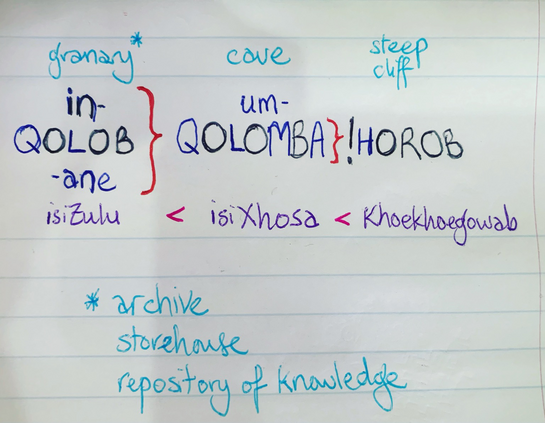 granary* cave steep cliff
in- um-
QOLOB } QOLOMBA } !HOROB
-ane
isiZulu < isiXhosa < Khoekhoegowab
* archive
storehouse
repository of knowledge